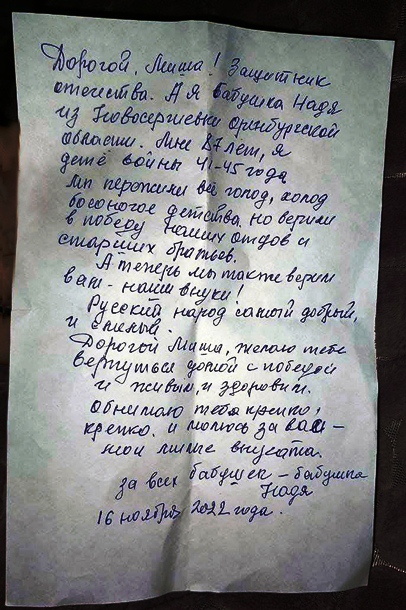 Дорогой, Миша! Защитник
отечества. А я бабушка Надя
из Новосергиевки Оренбургской
области. Мне 87 лет, я
детё войны 41-45 года
Мы пережили всё голод, холод
босоногое детства. но верили
в победу наших отцов и
старших братьев.
А теперь мы также верим
вам - наши внуки!
Русский народ самый добрый,
и смелый.
Дорогой Миша, желаю тебе
вернуться домой с победой
и живым, и здоровым.
обнимаю тебя крепко,
крепко. и молюсь за вас -
мои милые внучата.
за всех бабушек - бабушка
Надя
16 ноября 2022 года.